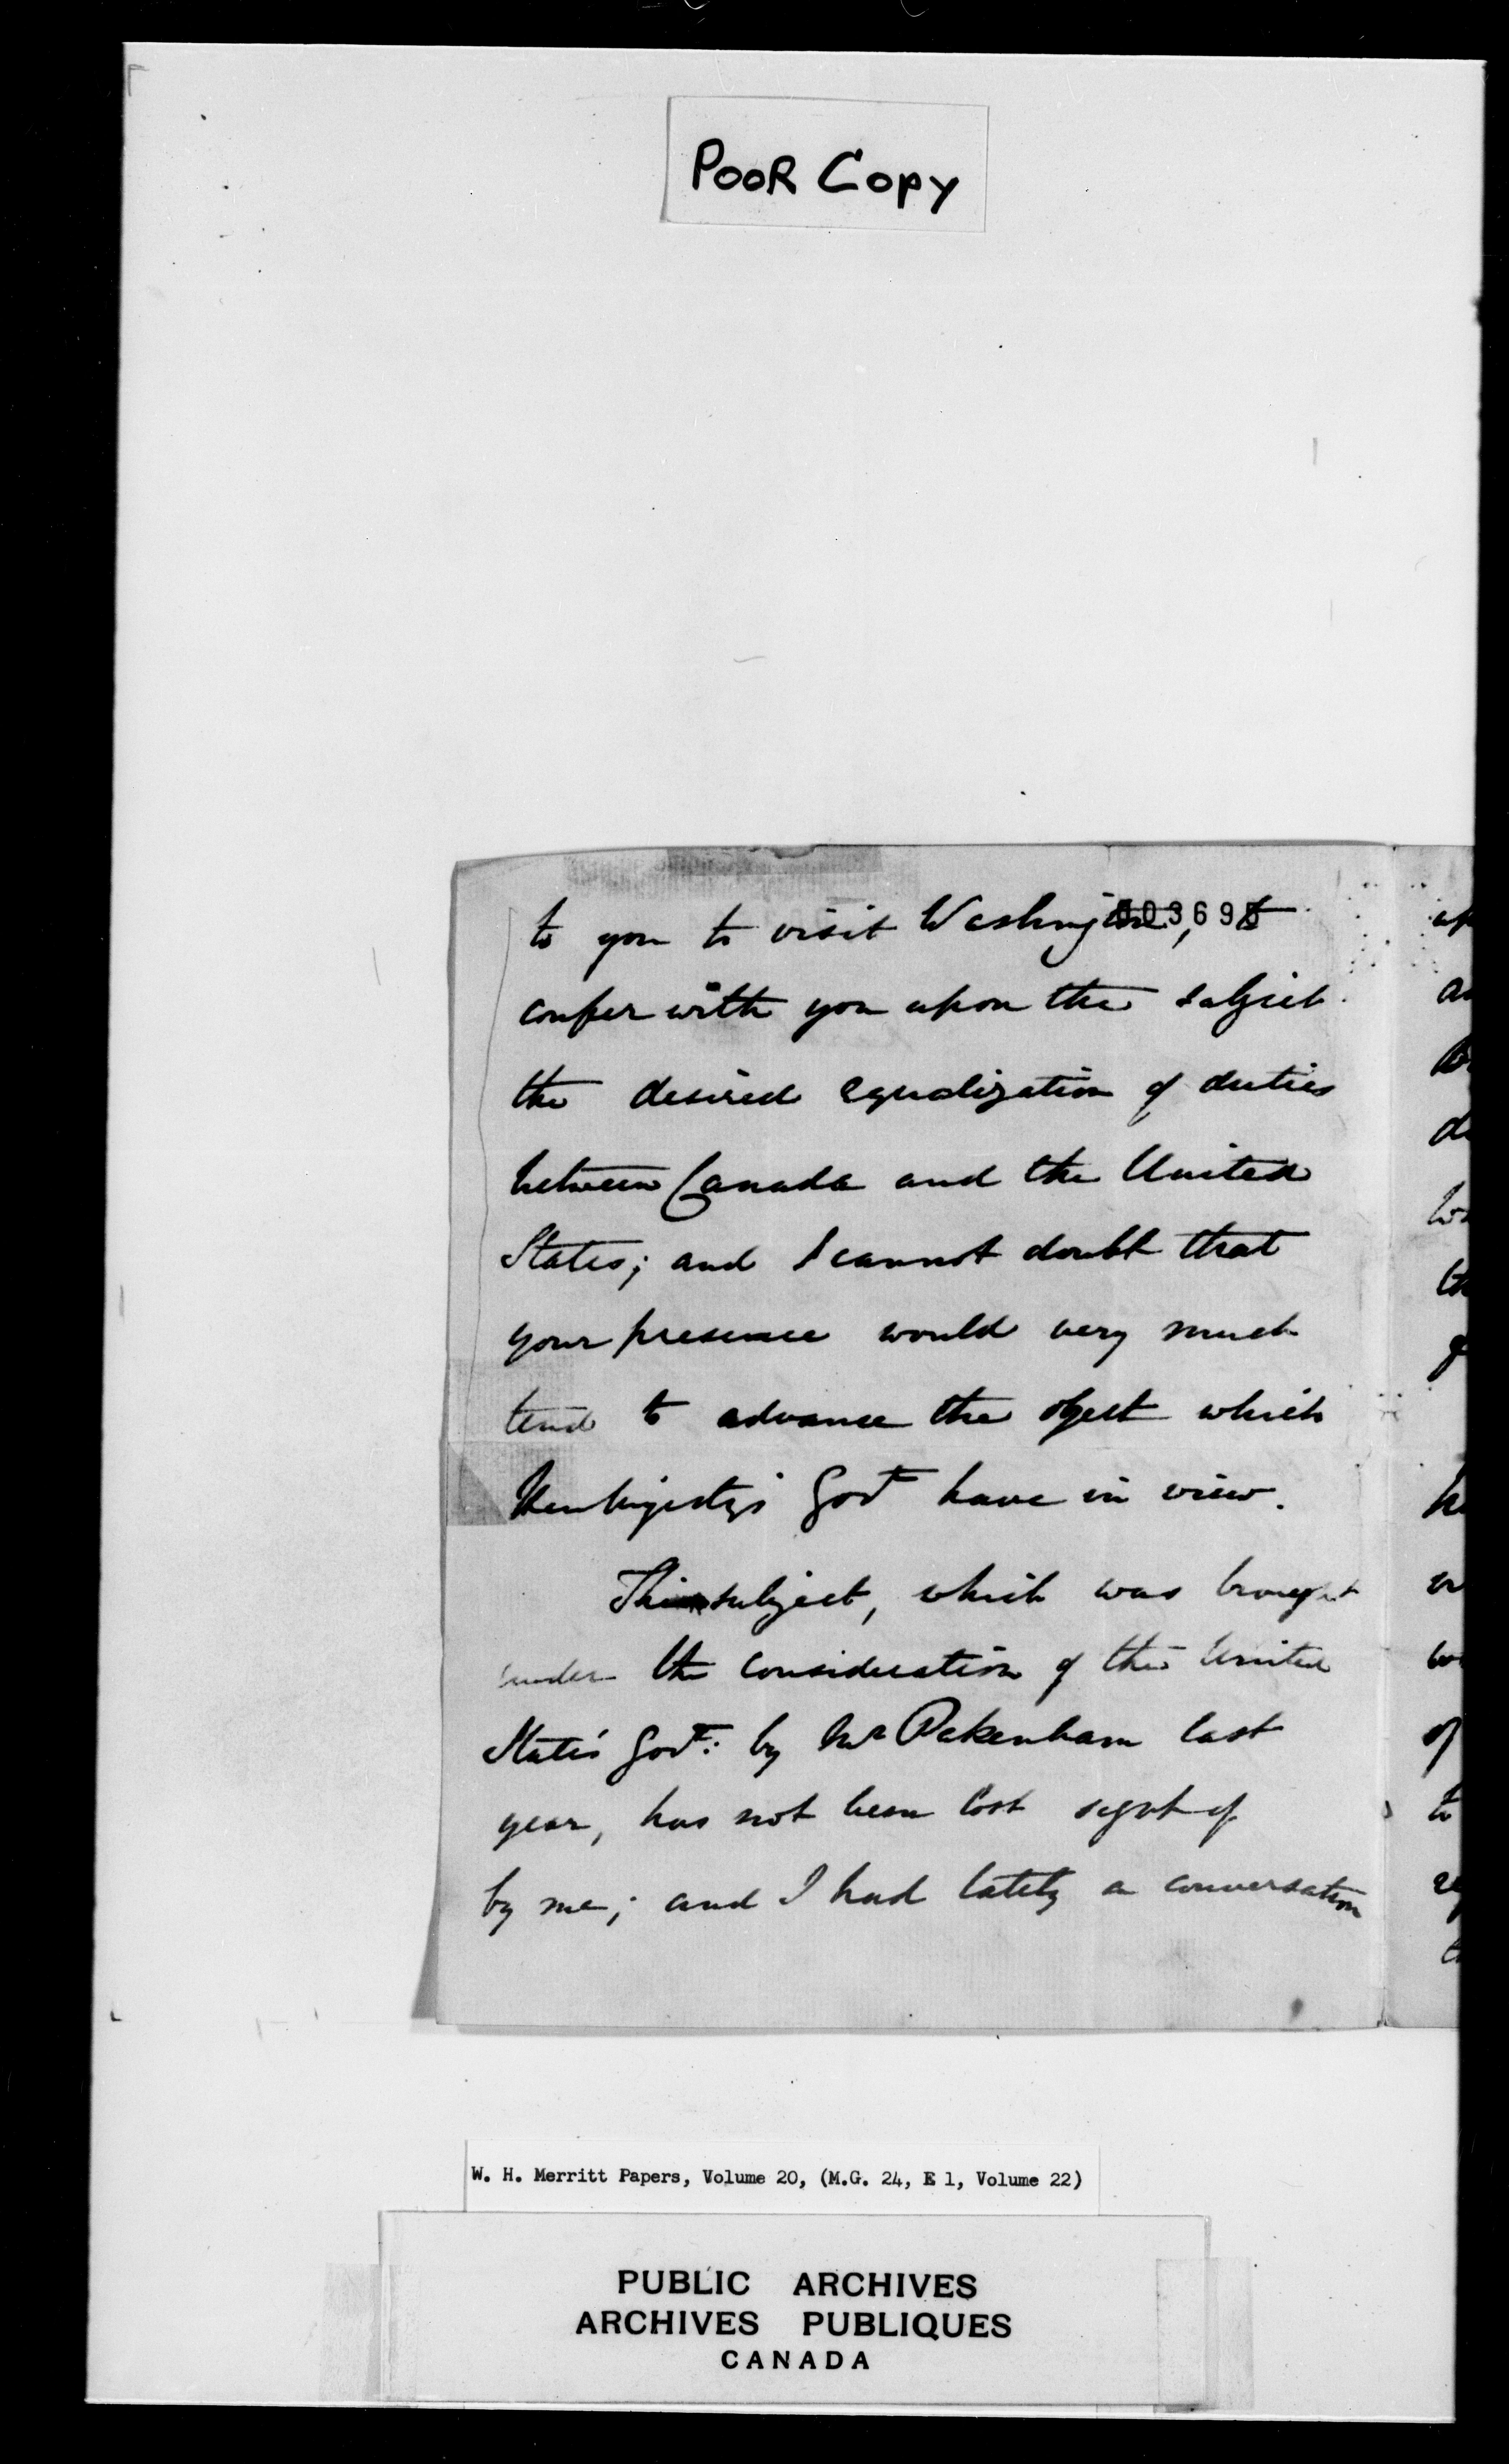 POOR COPY
to you to visit Washington, to
confer with you upon the subject
the desired equalization of duties
between Canada and the United
States; and I cannot doubt that
your presence would very much
tend to advance the object which
Her Majesty's Govt have in view.
This subject, which was brought
under the consideration of the United
States' Govt: by Mr Pakenham last
year, has not been lost sight of
by me; and I had lately a conversation
W. H. Merritt Papers, Volume 20, (M.G. 24, E 1, Volume 22)
PUBLIC ARCHIVES
ARCHIVES PUBLIQUES
CANADA